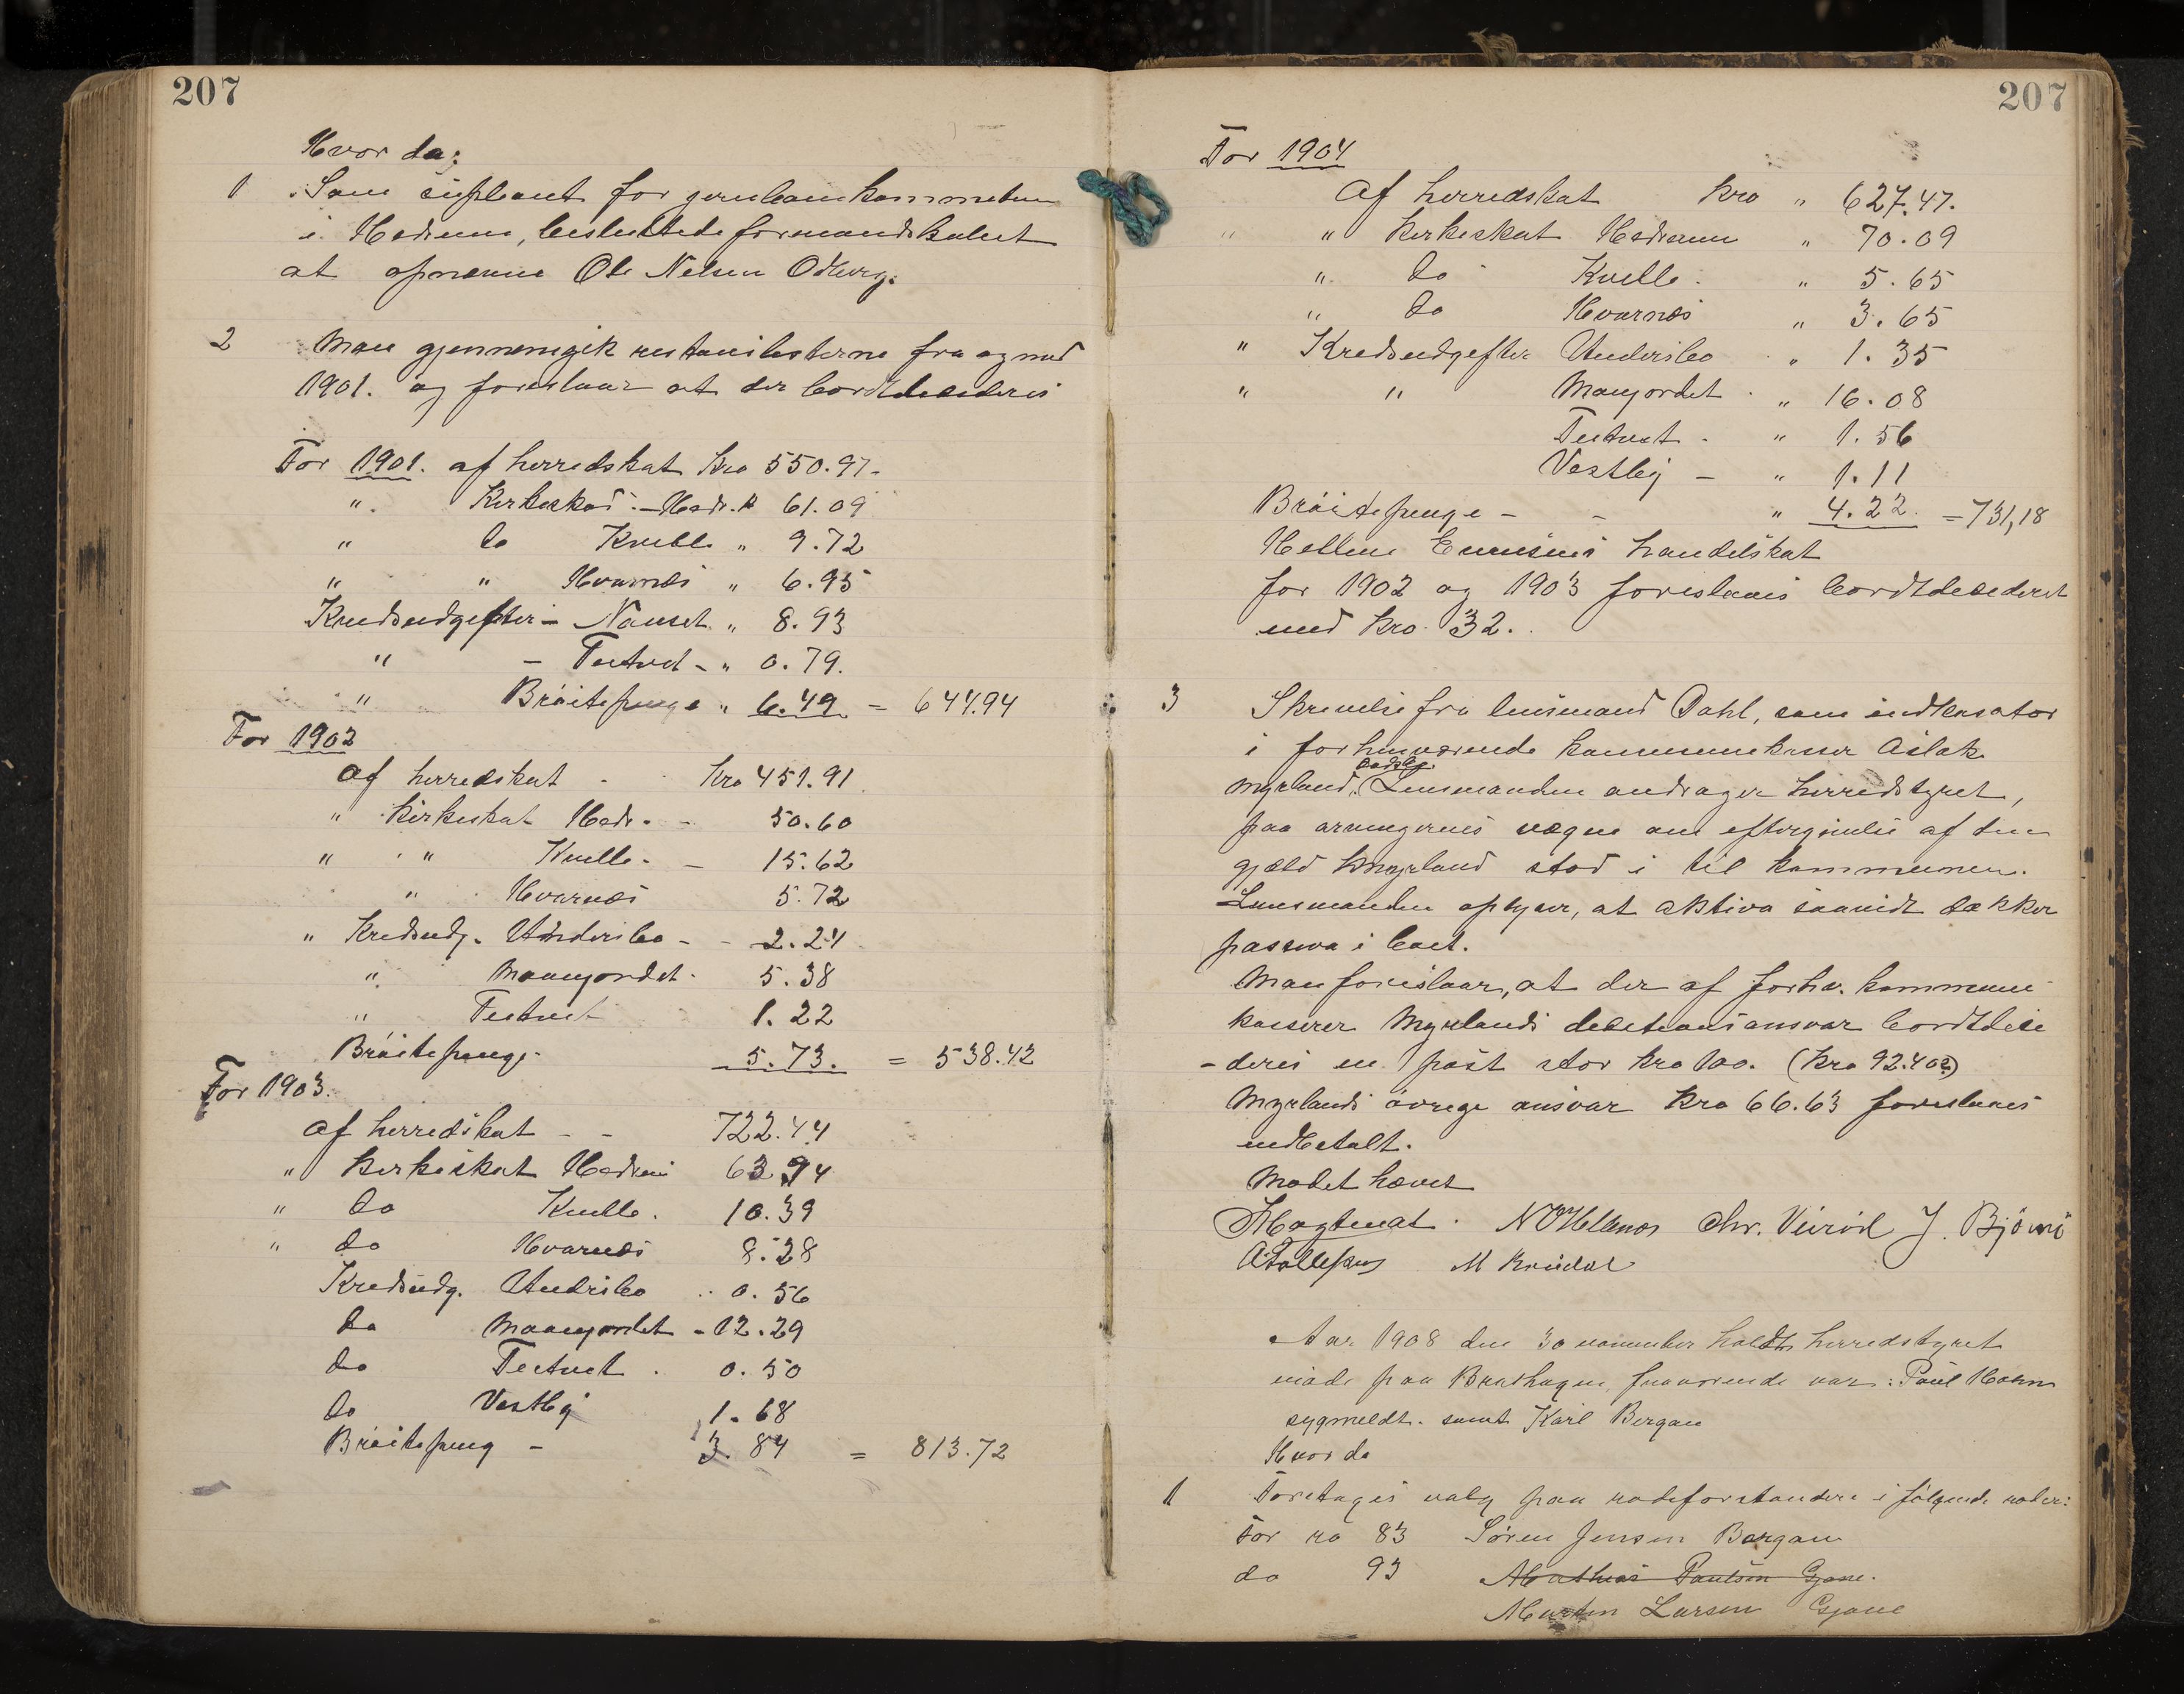 207
Hvor da:
1 Som supleant for jernbanekommeteen
i Hedrum, besluttede formandskabet
at opnævne Ole Nelsen Odberg.
2 Man gjennemgik restanselisterne fra og med
1901. og foreslaar at der bortdecideres
For 1901. af herredskat Kro 550.97-
" Kirkeskat - Hedr. " 61.09
" do Kvelle " 9.72
" " Hvarnæs " 6.95
Kredsudgifter - Nanset " 8.93
" - Teitved - " 0.79.
" Brøitepenge " 6.49 = 644.94
For 1902
af herredskat - kro 451.91
" Kirkeskat Hedr. - 50.60
" " Kvelle. - 15.62
" Hvarnæs 5.72
" Kredsudg. Undersbo - - 2.24
" Maanejordet - 5.38
" Teitvet 1.22
Brøitepenge - 5.73. = 538.42
For 1903.
af herredskat - - 722.44
" kirkeskat Hedrum 63.74
" do Kvelle. 10.39
" do Hvarnæs 8.28
Kredsudg. Undersbo .. 0.56
do Maanejordet - 12.29
do Teitvet . 0.50
do Vestby 1.68
Brøitepeng - 3.84 = 813.72
207
For 1904
Af herredskat Kro " 627.47.
" " Kirkeskat Hedrum " 70.09
" do - Kvelle. " 5.65
" do Hvarnæs " 3.65
" Kredsudgifter Undersbo " 1.35
" " Manejordet . " 16.08
Teitvet - " 1.56
Vestby - " 1.11
Brøitepenge - - " 4.22. = 731,18
Hellene handelskat
for 1902 og 1903 foreslaaes bortdecideret
med Kro 32.
3 Skrivelse fra lensmand Dahl, som indkasator
i forhenværende kommunekasser Aslak
Myrland. Lensmanden andrager herredstyret,
paa arvingernes vægne om eftergivelse af den
gjæld Myrland stod i til kommunen.
Lensmanden oplyser, at aktiva saavidt dækker
passiva i boet.
Man foreslaar, at der af forhv. kommune
kasserer Myrlands decisionsansvar bortdeci
-deres en post stor kro 100. (Kro 92.40)
Myrlands øvrige ansvar Kro 66.63 foreslaaes
indbetalt.
Mødet hævet
Chr. Veirød J. Bjørnø
A Tollefsen
Aar 1908 den 30 november holdtes herredstyret
møde paa Brathagen, fraværende var: Paul Holm
sygmeldt. samt Karl Bergan
Hvor da
1 Foretages valg paa rodeforstandere i følgende roder:
For ro 83 Søren Jensen Bergan
do 93 Mathias Paulsen Gjone.
Martin Larsen Gjone